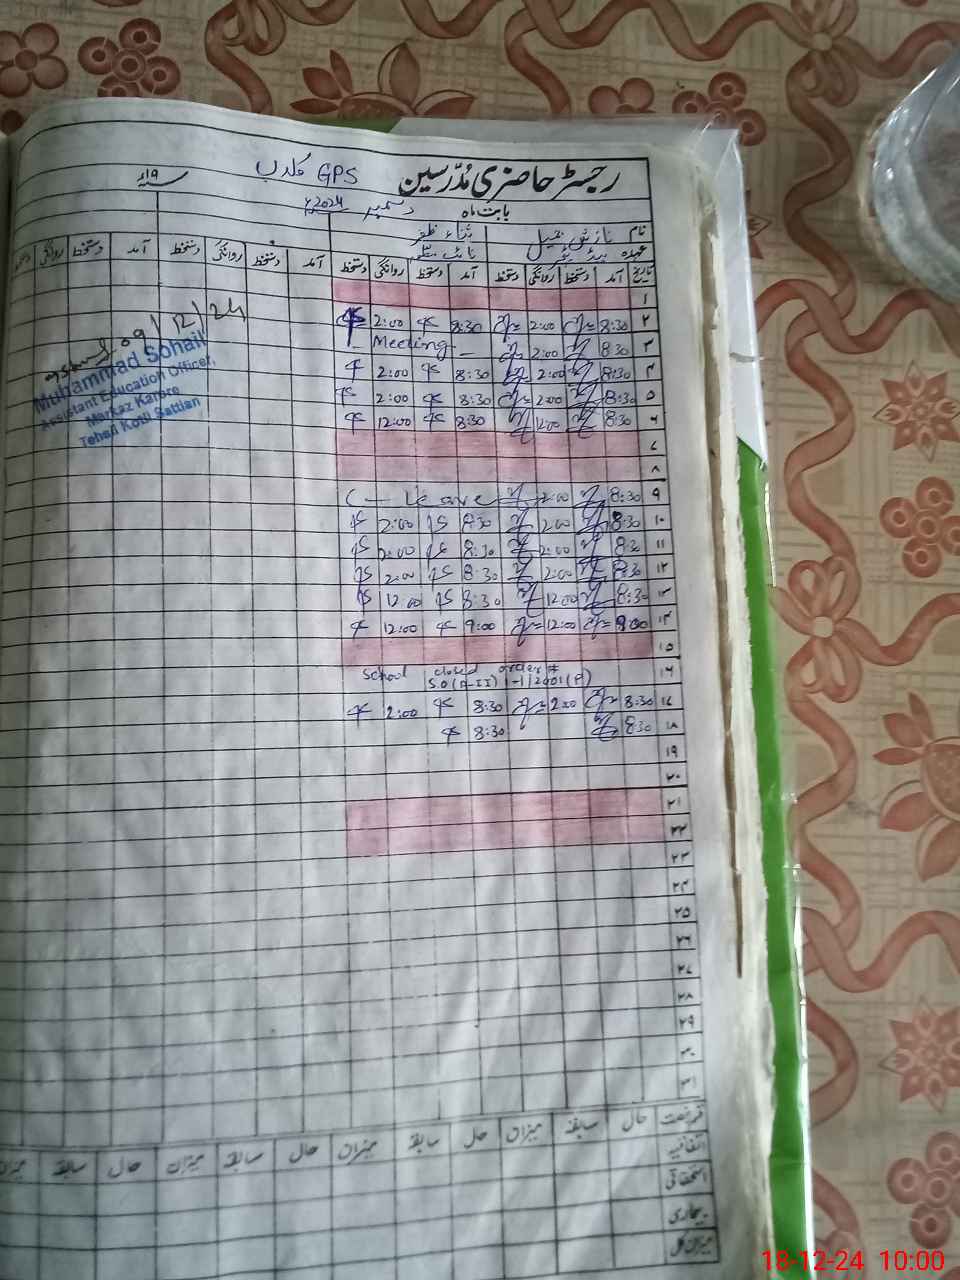 رجسٹر حاضری مُدّرسین GPS سنہ ۱۹ء
بابت ماہ دسمبر 2024ء
نام ثناء ظفر
عہدہ
تاریخ آمد دستخط روانگی دستخط آمد دستخط روانگی دستخط آمد دستخط روانگی دستخط آمد دستخط روانگی دستخط
۱
۲ 8:30 2:00 8:30 2:00
۳ 8:30 2:00 - Meeting -
۴ 8:30 2:00 8:30 2:00
۵ 8:30 2:00 8:30 2:00
۶ 8:30 12:00 8:30 12:00
۷
۸
۹ 8:30 2:00 C - Leave
۱۰ 8:30 2:00 8:30 2:00
۱۱ 8:30 2:00 8:30 2:00
۱۲ 8:30 2:00 8:30 2:00
۱۳ 8:30 12:00 8:30 12:00
۱۴ 9:00 12:00 9:00 12:00
۱۵
۱۶ School closed order #
SO(A-II) 1-1/2001(P)
۱۷ 8:30 2:00 8:30 2:00
۱۸ 8:30 8:30
۱۹
۲۰
۲۱
۲۲
۲۳
۲۴
۲۵
۲۶
۲۷
۲۸
۲۹
۳۰
۳۱
قسم رخصت حال سابقہ میزان حال سابقہ میزان حال سابقہ میزان حال سابقہ میزان
اتفاقیہ
استحقاقی
بیماری
میزان کل
09/12/24
Muhammad Sohail
Assistant Education Officer,
Markaz Karore
Tehsil Kotli Sattian
18-12-24 10:00